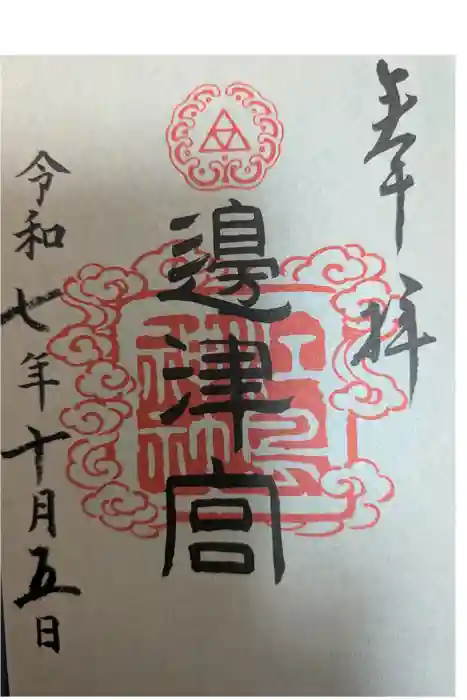 奉拝
邊津宮
令和七年十月五日